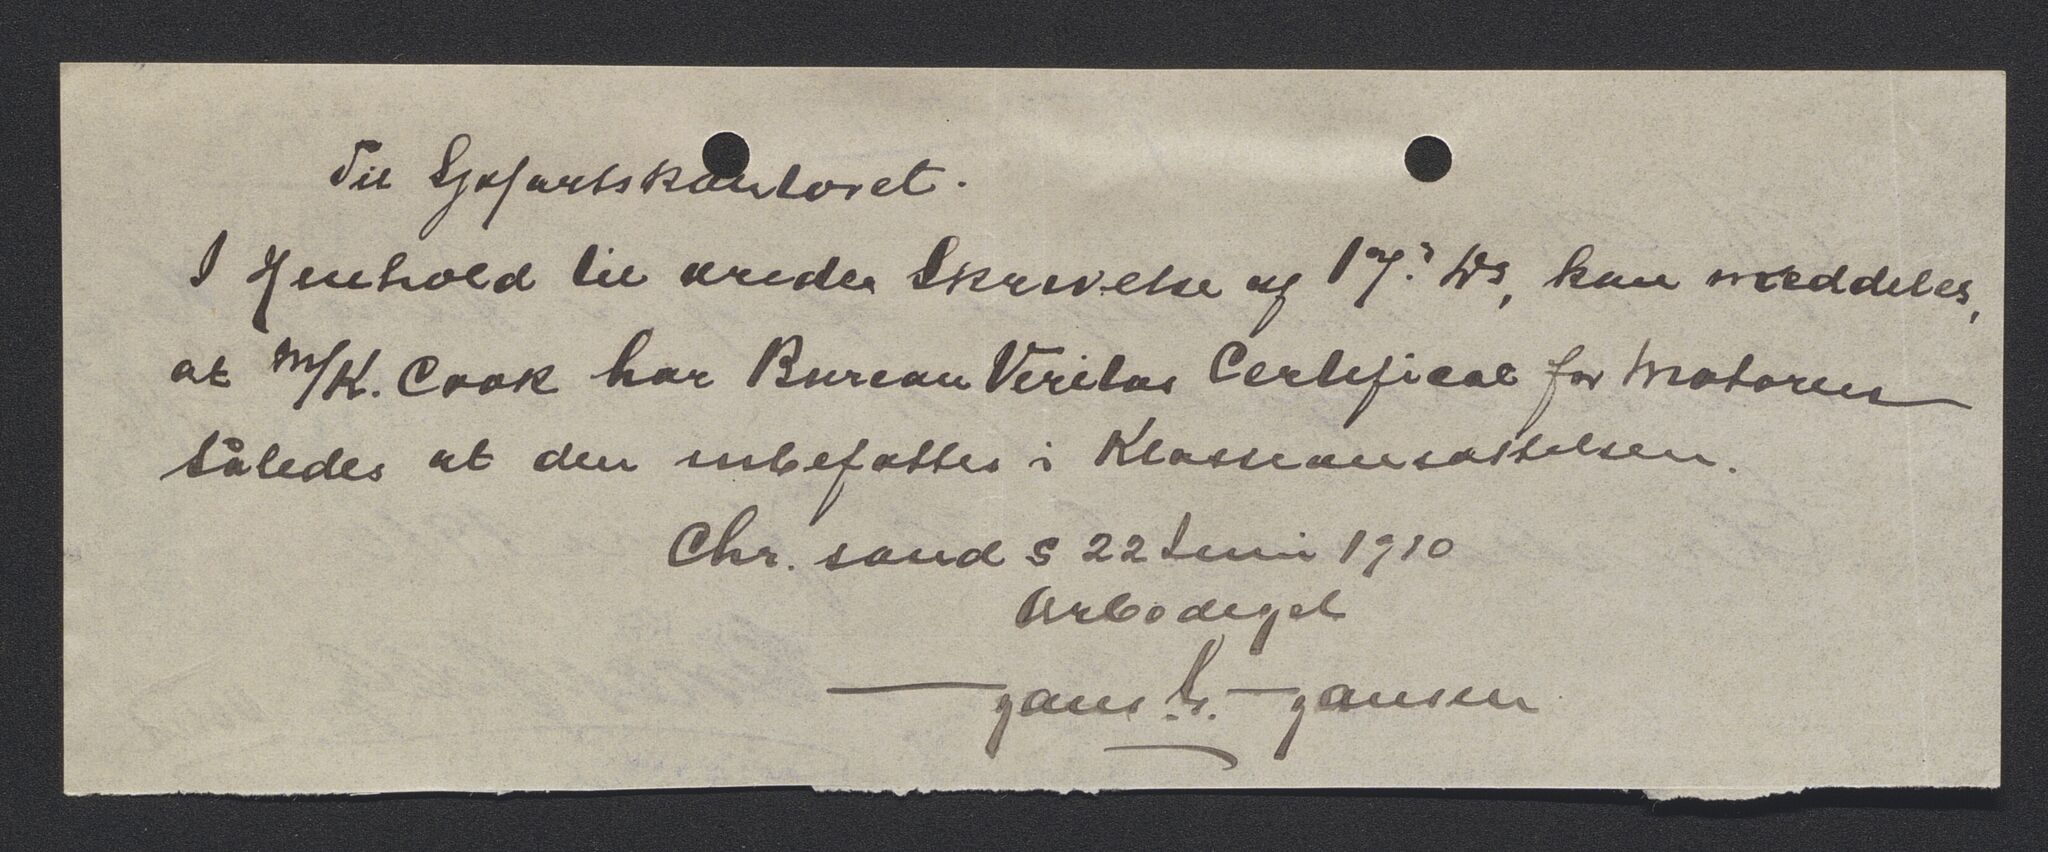 Til Sjøfartskontoret.
I Henhold til ærede Skrivelse af 17. ds, kan meddeles,
at M/K. Cook har Bureau Veritas Certificat for Motoren
således at den indbefattes i Klasseansættelsen.
Chr. sand S 22 Juni 1910
Ærbødigst
Hans Hansen